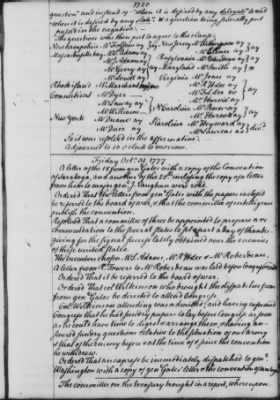 1720
question and instead of "when it is desired by any delegate" to read
"when it is desired by any state" & a question being put
passed in the negative.
The question whether put to agree to the clause
New hampshire Mr Folsom ay New Jersey Mr Witherspoon ay
Massachusetts bay Mr S Adams ay
Mr J Adams ay Pensylvania Mr Roberdeau ay
Mr Gerry ay Maryland Mr Smith ay
Mr Lovell ay Virginia Mr Jones ay
Rhode island Mr Marchant ay Mr F L Lee ay
Connecticut Mr Dyer ay Mr R H Lee ay
Mr Law ay Mr Harvie ay
Mr Williams ay N Carolina Mr Penn ay
New York Mr Duane ay Mr Harnett ay
Mr Duer ay S Carolina Mr Heyward ay
Mr Laurens
So it was resolved in the affirmative
Adjourned to 10 o'Clock tomorrow.
Friday Oct 31. 1777
A letter of the 18 from genl Gates with a copy of the Convention
of Saratoga, and another of the 20th inclosing the copy of a letter
from him to major genl J. Vaughan were read.
Ordered That the letters from genl Gates with the papers inclosed
be referred to the board of war, & that the committee of intelligence
publish the convention.
Resolved That a committee of three be appointed to prepare a re-
commendation to the several states to set apart a day of thanks-
giving for the signal success lately obtained over the enemies
of these united states.
The members chosen Mr S Adams, Mr R H Lee & Mr Roberdeau.
A letter from to Mr Roberdeau was laid before Congress & read
Ordered that it be referred to the board of war.
Ordered That col Wilkinson who brought the dispatches from
from genl Gates be directed to attend Congress.
Col Wilkinson attending was admitted, and having informed
Congress that he had sundry papers to lay before Congress as soon
as he could have time to digest & arrange them, & having an-
swered sundry questions relative to the situation of our army
& that of the enemy before & at the time of signing the convention
he withdrew.
Ordered That an express be immediately dispatched to genl
Washington with a copy of genl Gates' letter & the convention of Saratoga
The committee on the treasury brought in a report, whereupon